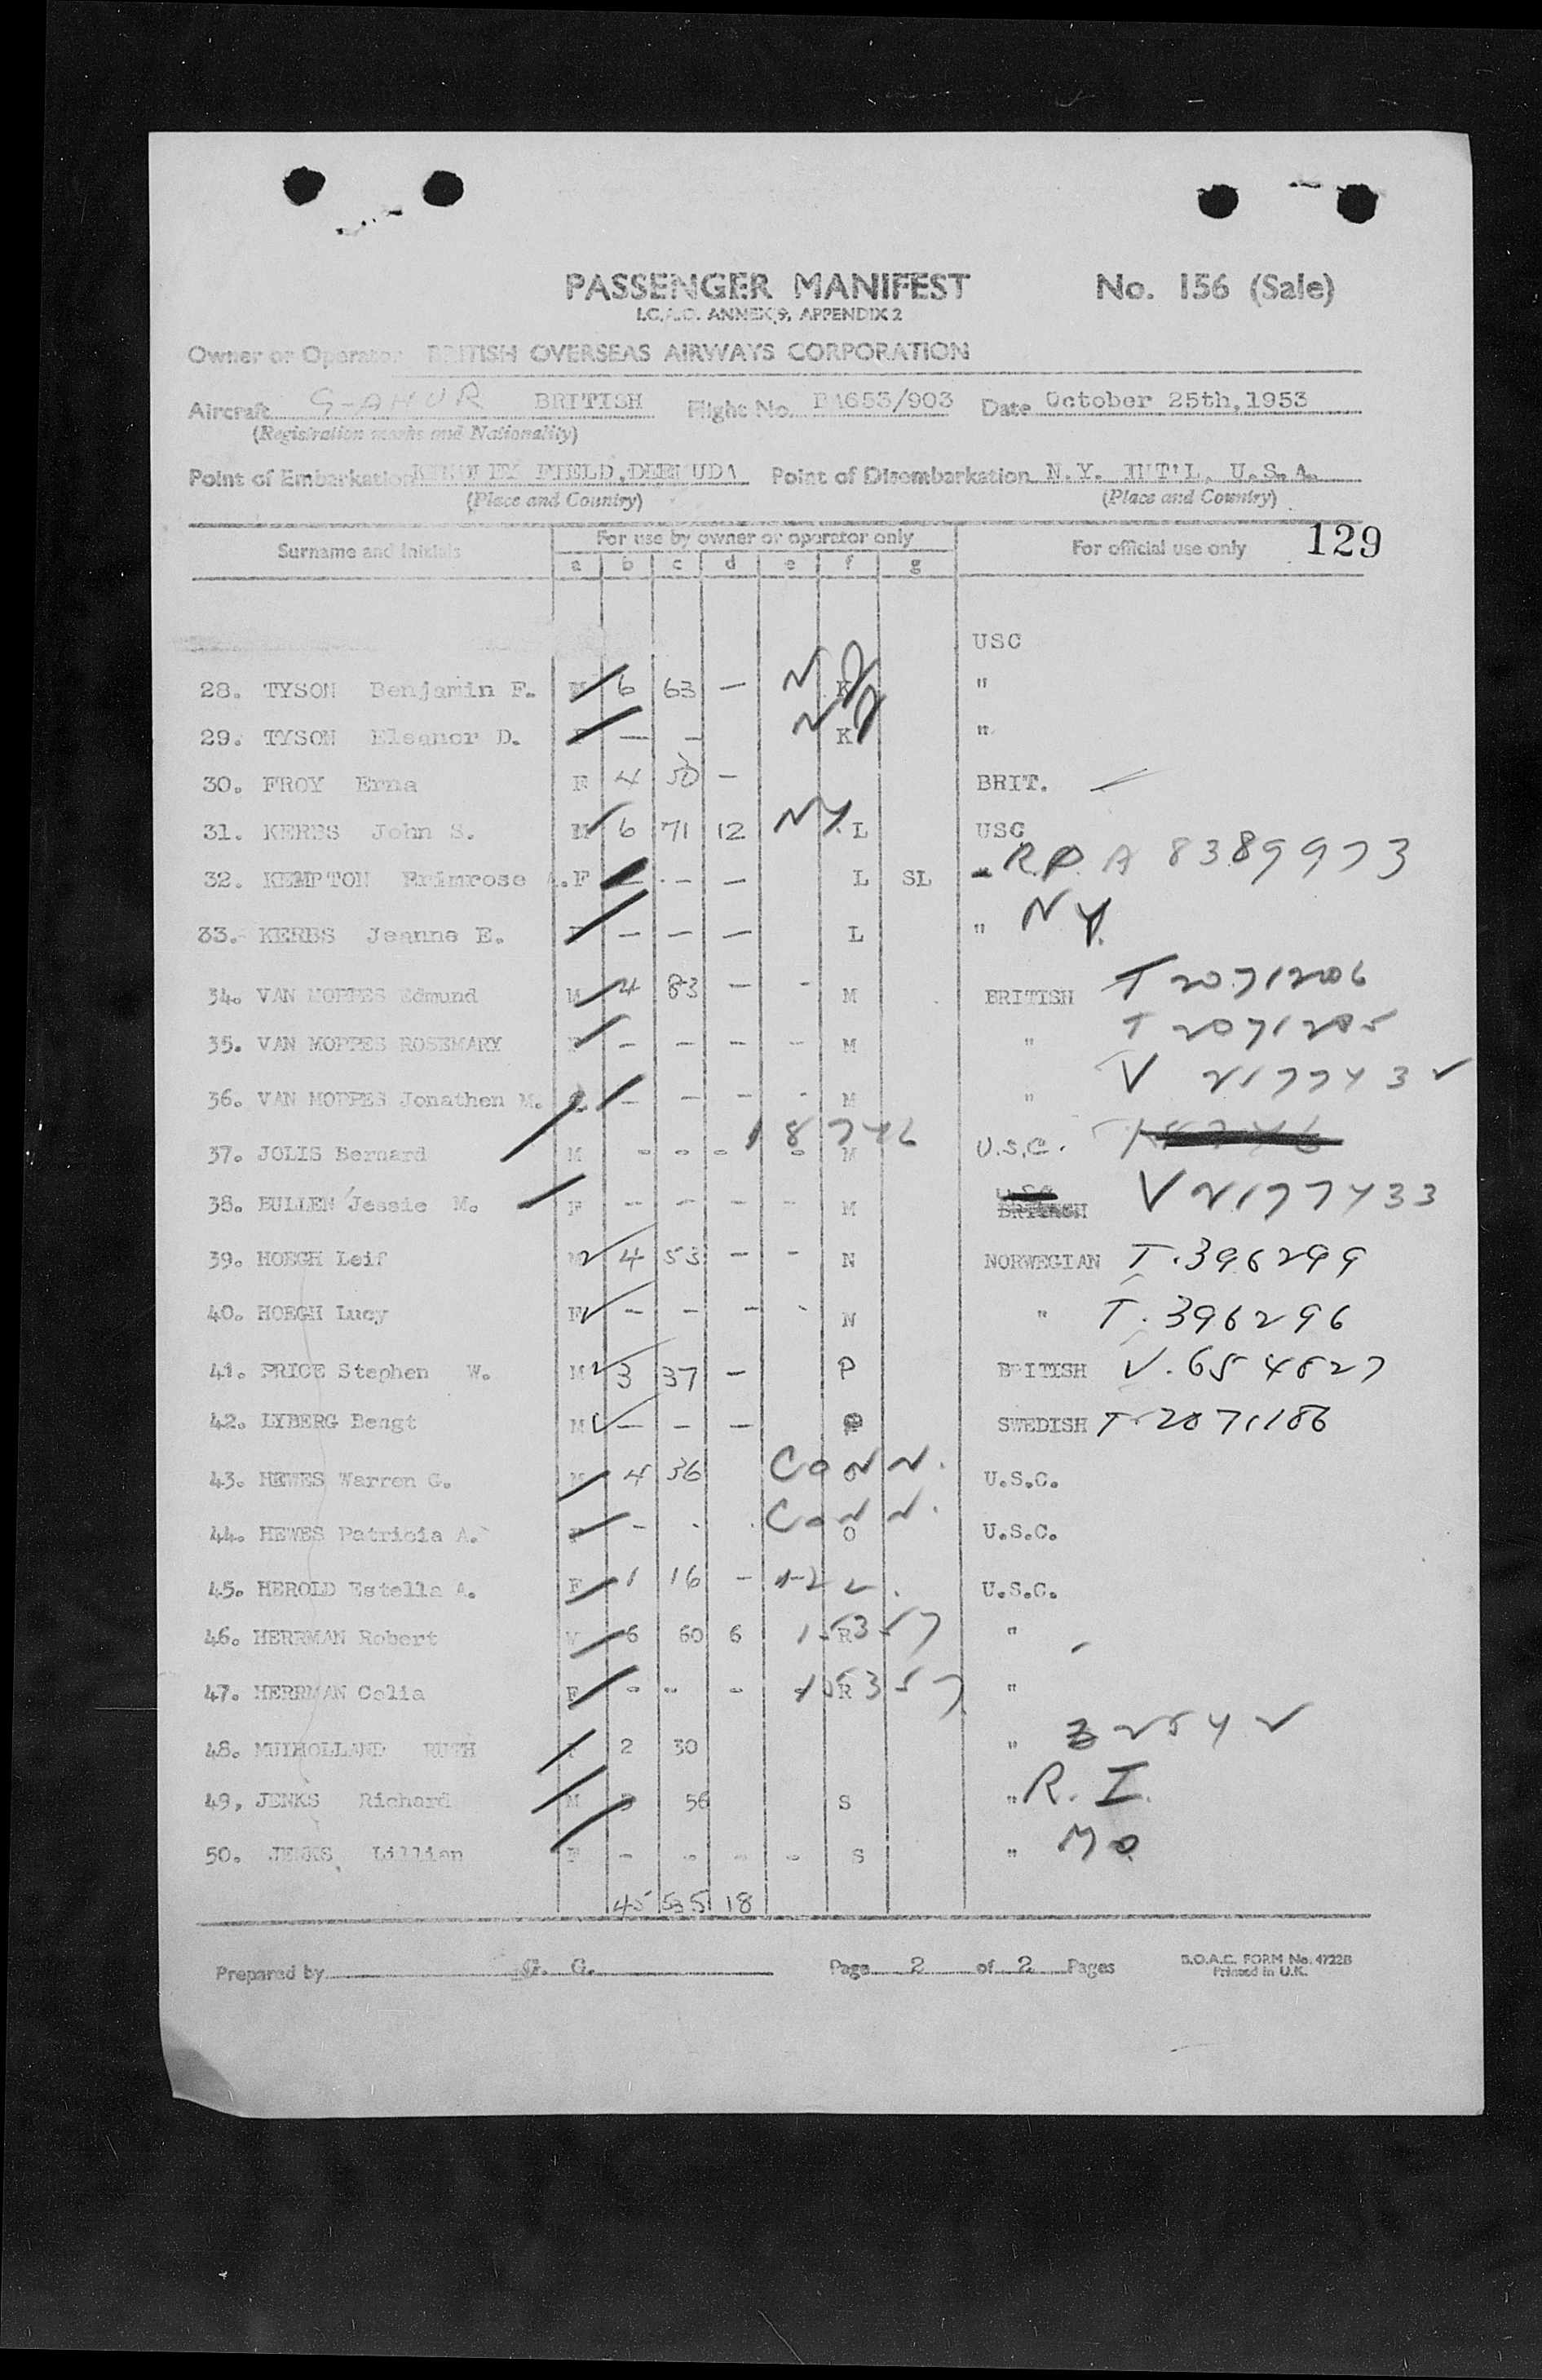 PASSENGER MANIFEST No. 156 (Sale)
I.C.A.O. ANNEX 9, APPENDIX 2
Owner or Operator BRITISH OVERSEAS AIRWAYS CORPORATION
Aircraft G-AHUR BRITISH Flight No. BA653/903 Date October 25th, 1953
(Registration marks and Nationality)
Point of Embarkation FIELD, Point of Disembarkation N.Y. INT'L, U.S.A.
(Place and Country) (Place and Country)
Surname and Initials For use by owner or operator only For official use only 129
a b c d e f g
USC
28. TYSON Benjamin F. M 6 63 — K "
29. TYSON Eleanor D. F — — K "
30. FROY Erna F 4 50 — BRIT.
31. KERBS John S. M 6 71 12 NY. L USC
32. KEMPTON Primrose A. F — — — L SL " R.P.A 8389973
33. KERBS Jeanne E. F — — — L " NY.
34. VAN MOPPES Edmund M 4 83 — - M BRITISH T 2071206
35. VAN MOPPES ROSEMARY F — — — - M " T 2071205
36. VAN MOPPES Jonathen M. — — - - M " V 2177432
37. JOLIS Bernard M - - - 18746 - M U.S.C.
38. BULLEN Jessie M. F — — — - M BRITISH V 2177433
39. HOEGH Leif M 4 53 — - N NORWEGIAN T.396299
40. HOEGH Lucy F — — — - N " T.396296
41. PRICE Stephen W. M 3 37 — P BRITISH V.654827
42. LYBERG Bengt M — — — P SWEDISH T-2071186
43. HEWES Warren G. M 4 36 CONN. O U.S.C.
44. HEWES Patricia A. F - - . CONN. O U.S.C.
45. HEROLD Estella A. F 1 16 — U.S.C.
46. HERRMAN Robert M 6 60 6 15357 R "
47. HERRMAN Celia F - - - 15357 R "
48. MULHOLLAND RUTH F 2 30 " 32542
49, JENKS Richard M 3 56 S " R.I.
50. JENKS Lillian F - - - - S " MO.
45 535 18
Prepared by G. G. Page 2 of 2 Pages B.O.A.C. FORM No. 4722B
Printed in U.K.